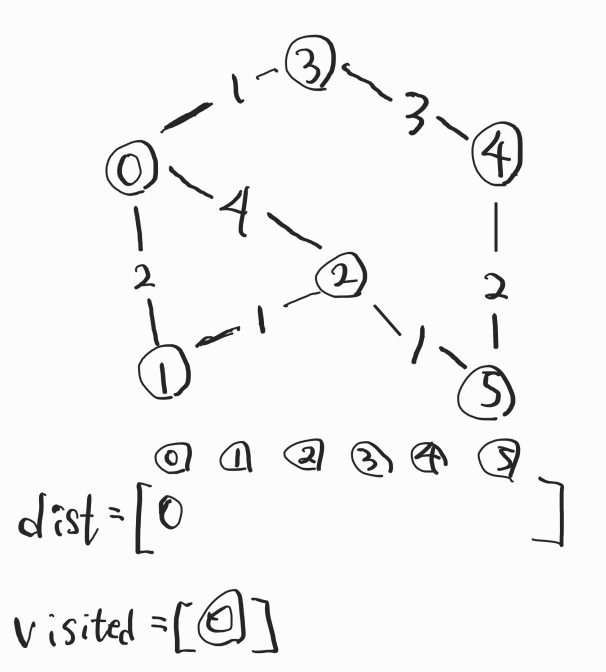 3
1
3
4
0
4
2
2
2
1
1
1
5
0 1 2 3 4 5
dist = [0 ]
visited = [0]